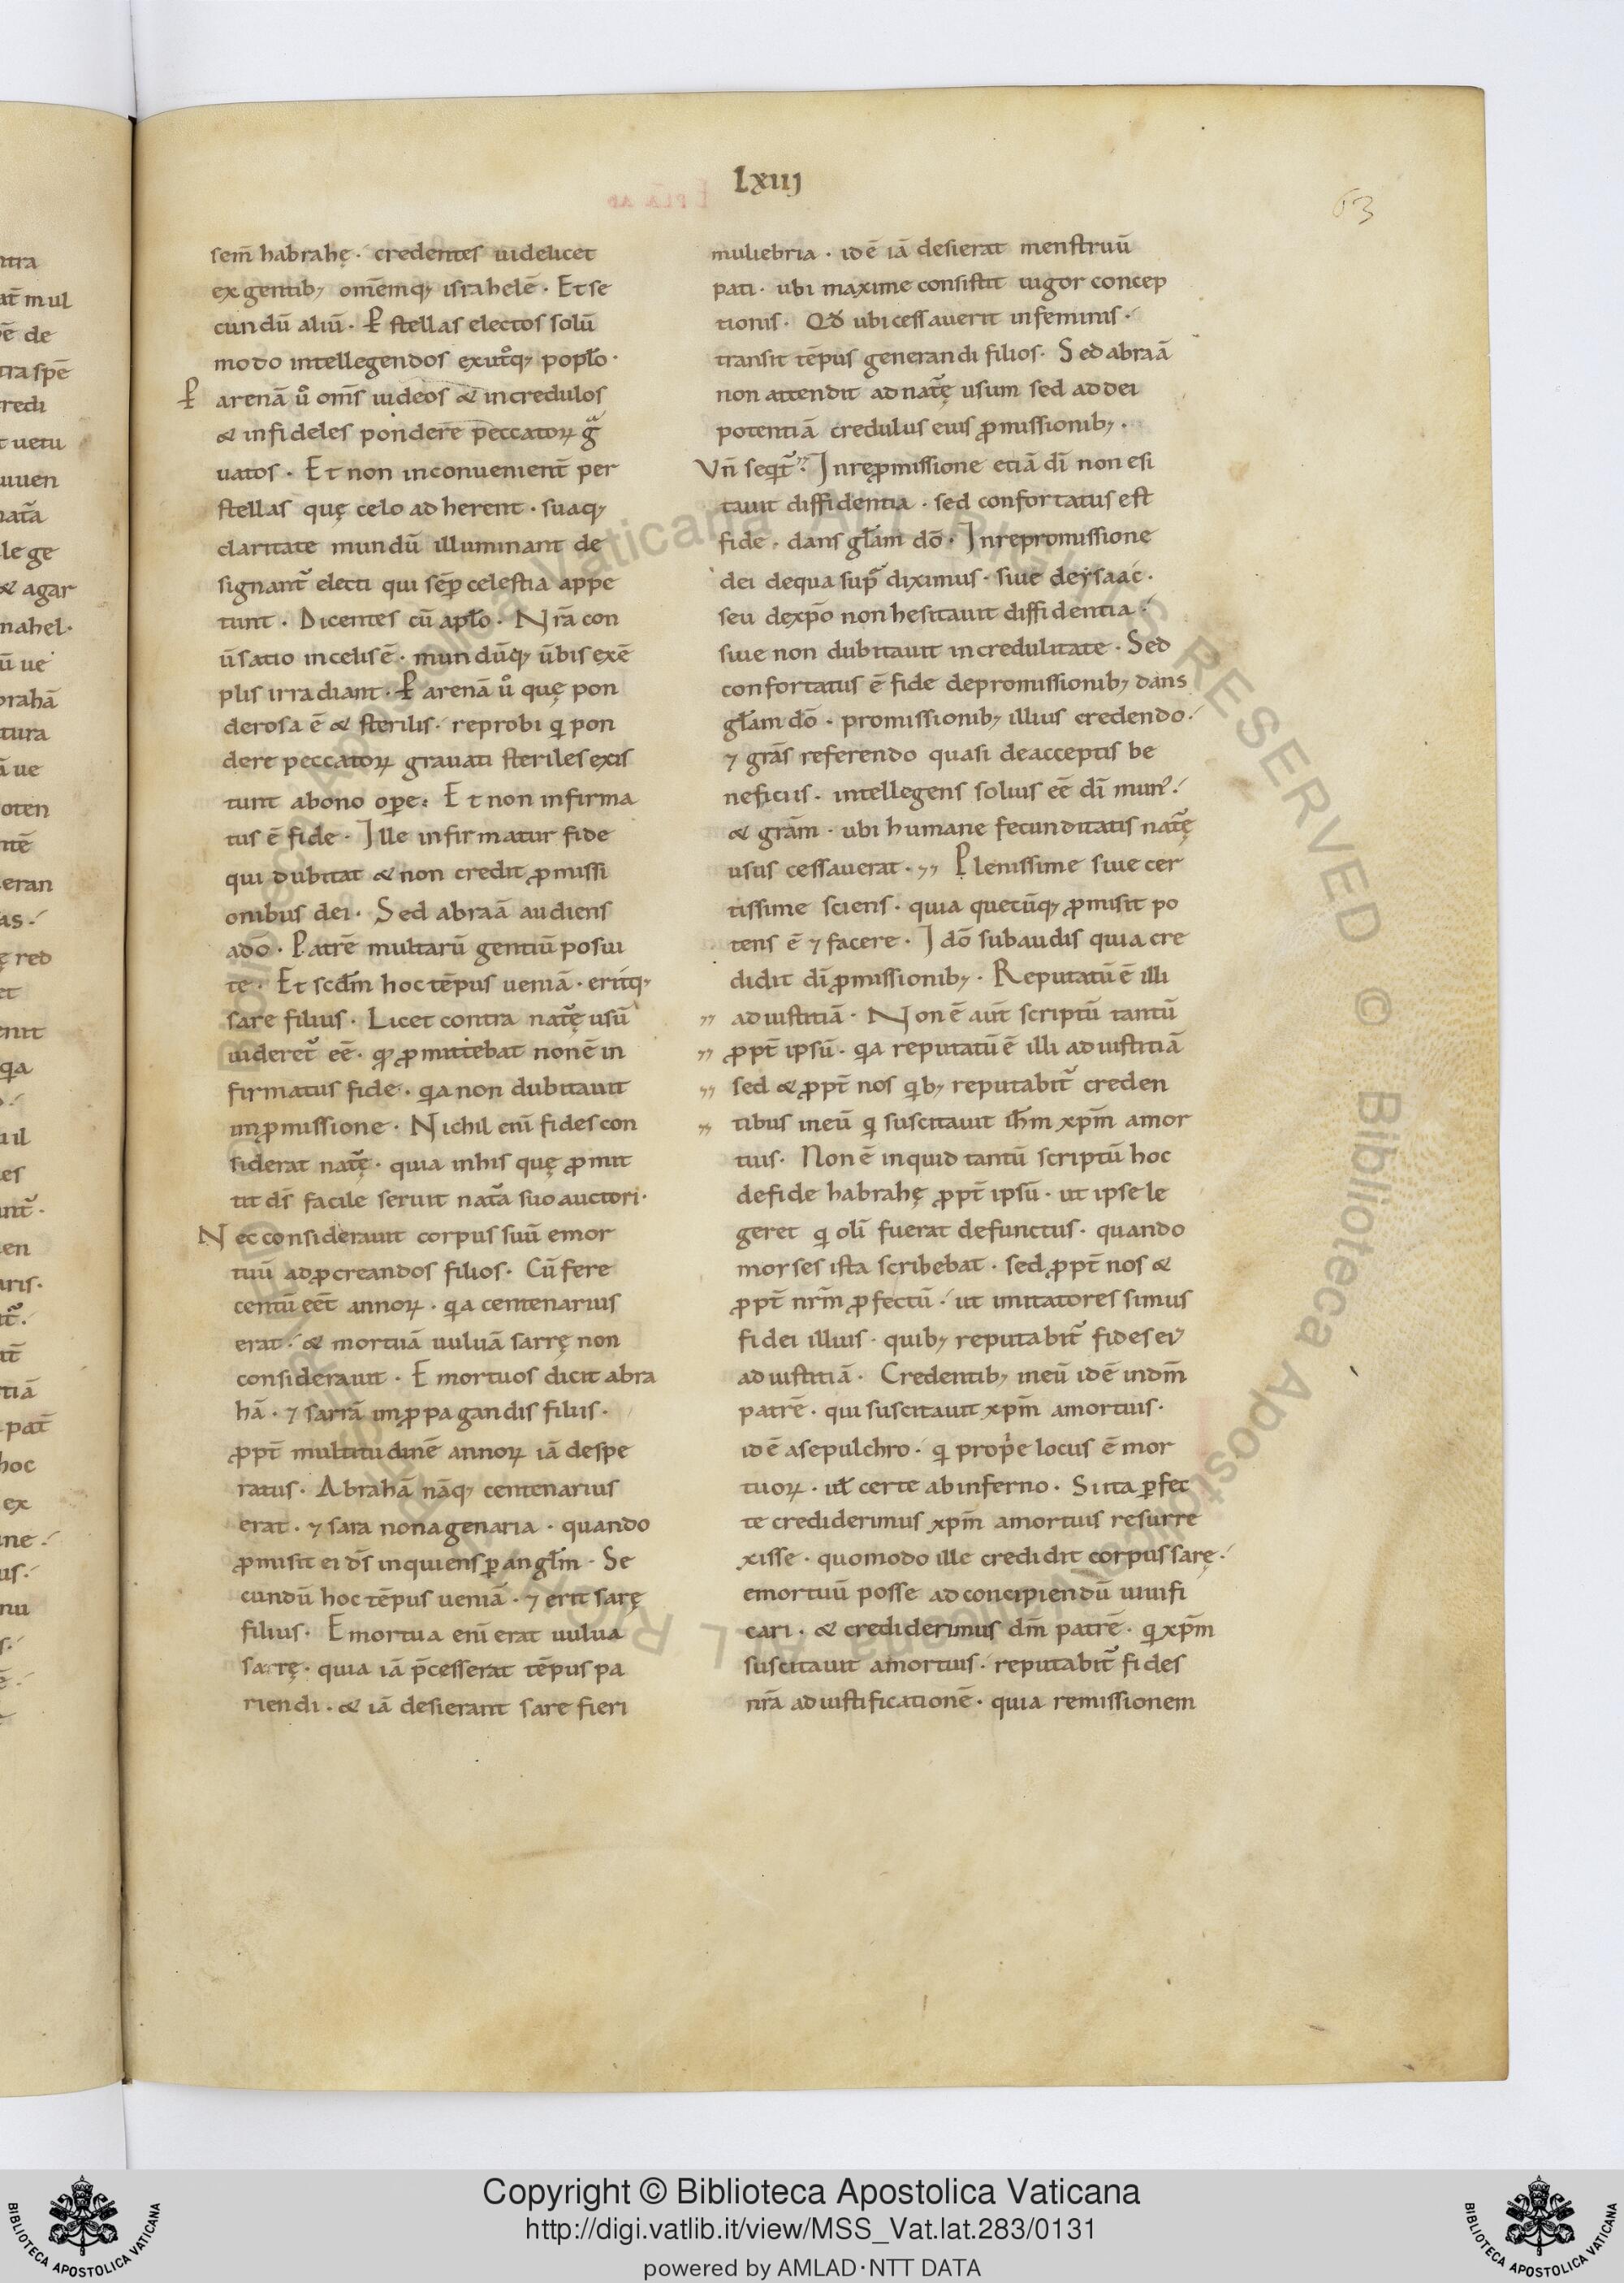 Lxiij
63
sem̄ habrahę · credentes uidelicet
ex gentib; om̄emq; israhelē · Et se
cundū aliū · ꝑ stellas electos solū
modo intellegendos ex utq; popl̄o ·
ꝑ arenā ů om̄s iudeos & incredulos
& infideles pondere peccatoꝝ g̃
uatos · Et non inconuenient̄ per
stellas quę celo adherent · suaq;
claritate mundū illuminant de
signant̄ electi qui sēꝑ celestia appe
tunt · Dicentes cū apl̄o · Nr̄a con
ūsatio in celis ē · mundūq; ūbis exē
plis irradiant · ꝑ arenā ů quę pon
derosa ē & sterilis · reprobi q̄ pon
dere peccatoꝝ grauati steriles exis
tunt a bono oꝑe · Et non infirma
tus ē fide · Ille infirmatur fide
qui dubitat & non credit ꝓmissi
onibus dei · Sed abraā audiens
a dō · Patrē multarū gentiū posui
te · Et scd̄m hoc tēpus ueniā · eritq;
sare filius · Licet contra nat̄ę usū
uideret̄ eē · qd̄ ꝓmittebat non ē in
firmatus fide · q̄a non dubitauit
in ꝓmissione · Nichil enī fides con
siderat nat̄ę · quia in his quę ꝓmit
tit d̄s facile seruit nat̄a suo auctori ·
Nec considerauit corpus suū emor
tuū ad ꝓcreandos filios · Cū fere
centū eēt annoꝝ · q̄a centenarius
erat · & mortuā uuluā sarrę non
considerauit · Emortuos dicit abra
hā · ⁊ sarrā in ꝓpagandis filiis ·
ꝓpt̄ multitudinē annoꝝ iā despe
ratus · Abrahā nāq; centenarius
erat · ⁊ sara nonagenaria · quando
ꝓmisit ei d̄s inquiens ꝑ angl̄m · Se
cundū hoc tēpus ueniā · ⁊ erit sarę
filius · Emortua enī erat uulua
sarrę · quia iā p̄cesserat tēpus pa
riendi · & iā desierant sare fieri
muliebria · id ē iā desierat menstruū
pati · ubi maxime consistit uigor concep
tionis · Qd̄ ubi cessauerit in feminis ·
transit tēpus generandi filios · Sed abraā
non attendit ad nat̄ę usum sed ad dei
potentiā credulus eius ꝓmissionib; ·
Vn̄ seqt̄ · In reꝓmissione etiā dī non esi
tauit diffidentia · sed confortatus est
fide · dans gl̄am dō · In repromissione
dei de qua sup̄ diximus · siue de ysaac ·
seu de xp̄o non hesitauit diffidentia ·
siue non dubitauit incredulitate · Sed
confortatus ē fide de promissionib; dans
gl̄am dō · promissionib; illius credendo ·
⁊ grās referendo quasi de acceptis be
neficiis · intellegens solius eē dī mun̄ ·
& grām · ubi humane fecunditatis nat̄ę
usus cessauerat · Plenissime siue cer
tissime sciens · quia quecūq; ꝓmisit po
tens ē ⁊ facere · Idō subaudis quia cre
didit dī ꝓmissionib; · Reputatū ē illi
ad iustitiā · Non ē aūt scriptū tantū
ꝓpt̄ ipsū · q̄a reputatū ē illi ad iustitiā
sed & ꝓpt̄ nos q̄b; reputabit̄ creden
tibus in eū q̄ suscitauit ih̄m xp̄m a mor
tuis · Non ē inquid tantū scriptū hoc
de fide habrahę ꝓpt̄ ipsū · ut ipse le
geret q̄ olī fuerat defunctus · quando
morses ista scribebat · sed ꝓpt̄ nos &
ꝓpt̄ nr̄m ꝓfectū · ut imitatores simus
fidei illius · quib; reputabit̄ fides ei'
ad iustitiā · Credentib; in eū id ē in dm̄
patrē · qui suscitauit xp̄m a mortuis ·
id ē a sepulchro · q̄ prop̄e locus ē mor
tuoꝝ · ul̄ certe ab inferno · Si ita ꝑfec
te crediderimus xp̄m a mortuis resurre
xisse · quomodo ille credidit corpus sarę ·
emortuū posse ad concipiendū uiuifi
cari · & crediderimus dm̄ patrē · q̄ xp̄m
suscitauit a mortuis · reputabit̄ fides
nr̄a ad iustificationē · quia remissionem
Copyright © Biblioteca Apostolica Vaticana
http://digi.vatlib.it/view/MSS_Vat.lat.283/0131
powered by AMLAD·NTT DATA